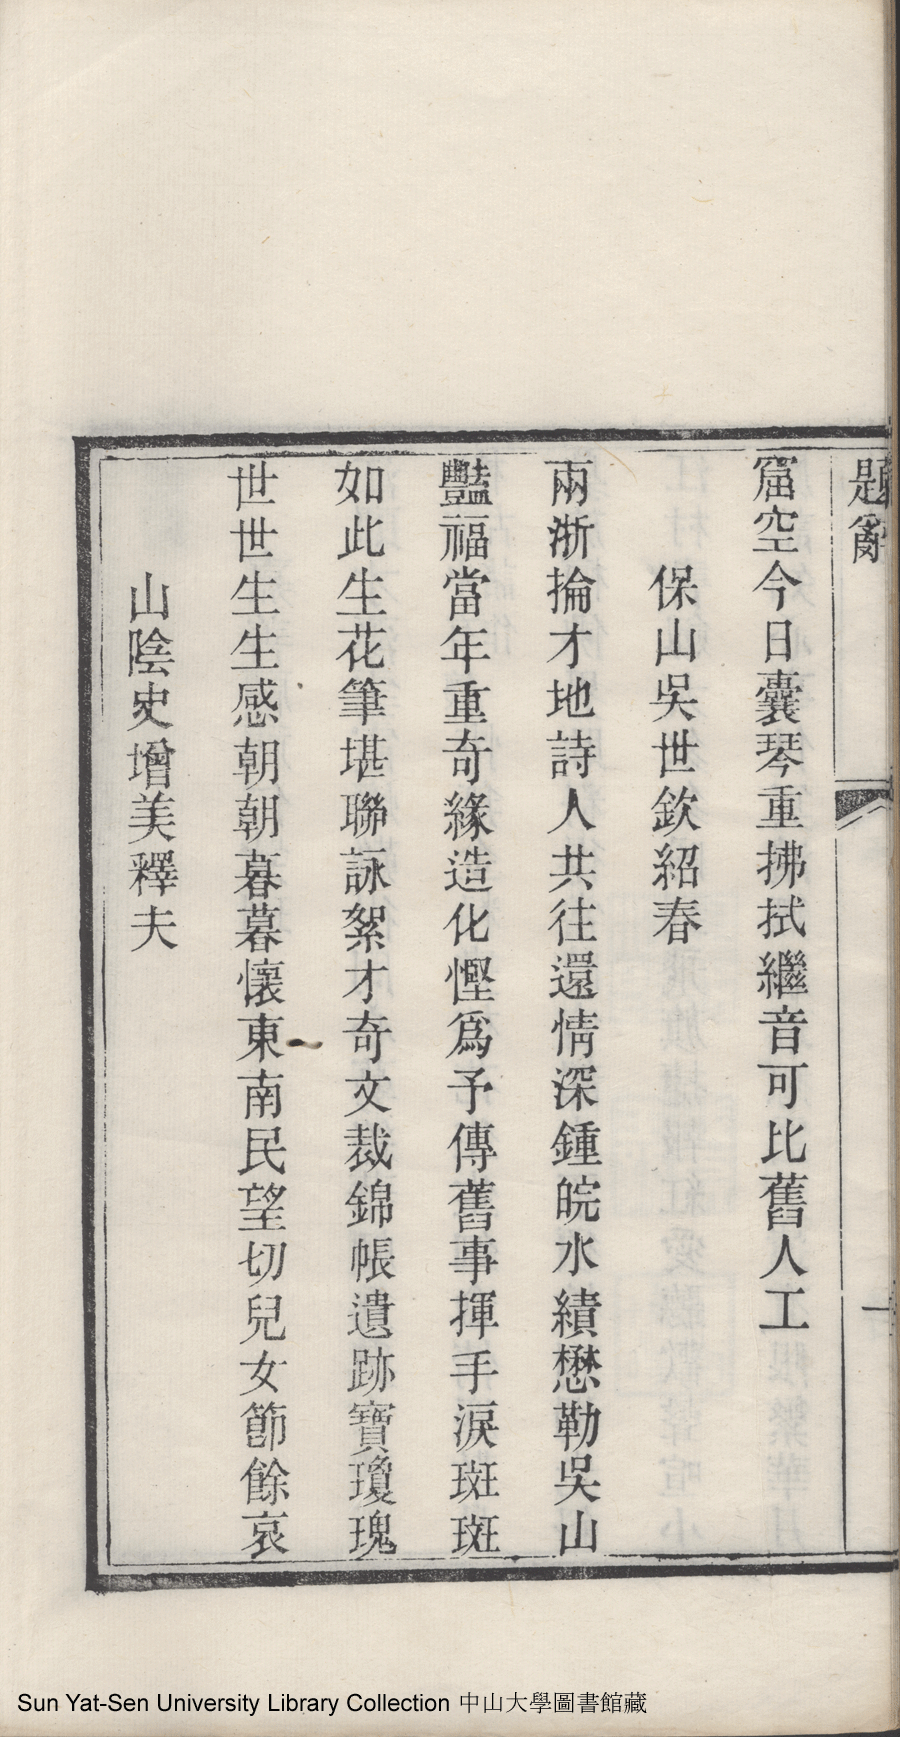 題辭
一
窟空今日囊琴重拂拭繼音可比舊人工
保山吳世欽紹春
兩浙掄才地詩人共往還情深鍾皖水績懋勒吳山
豔福當年重奇緣造化慳爲予傳舊事揮手淚斑斑
如此生花筆堪聯詠絮才奇文裁錦帳遺跡寶瓊瑰
世世生生感朝朝暮暮懷東南民望切兒女節餘哀
山陰史增美釋夫
Sun Yat-Sen University Library Collection 中山大學圖書館藏